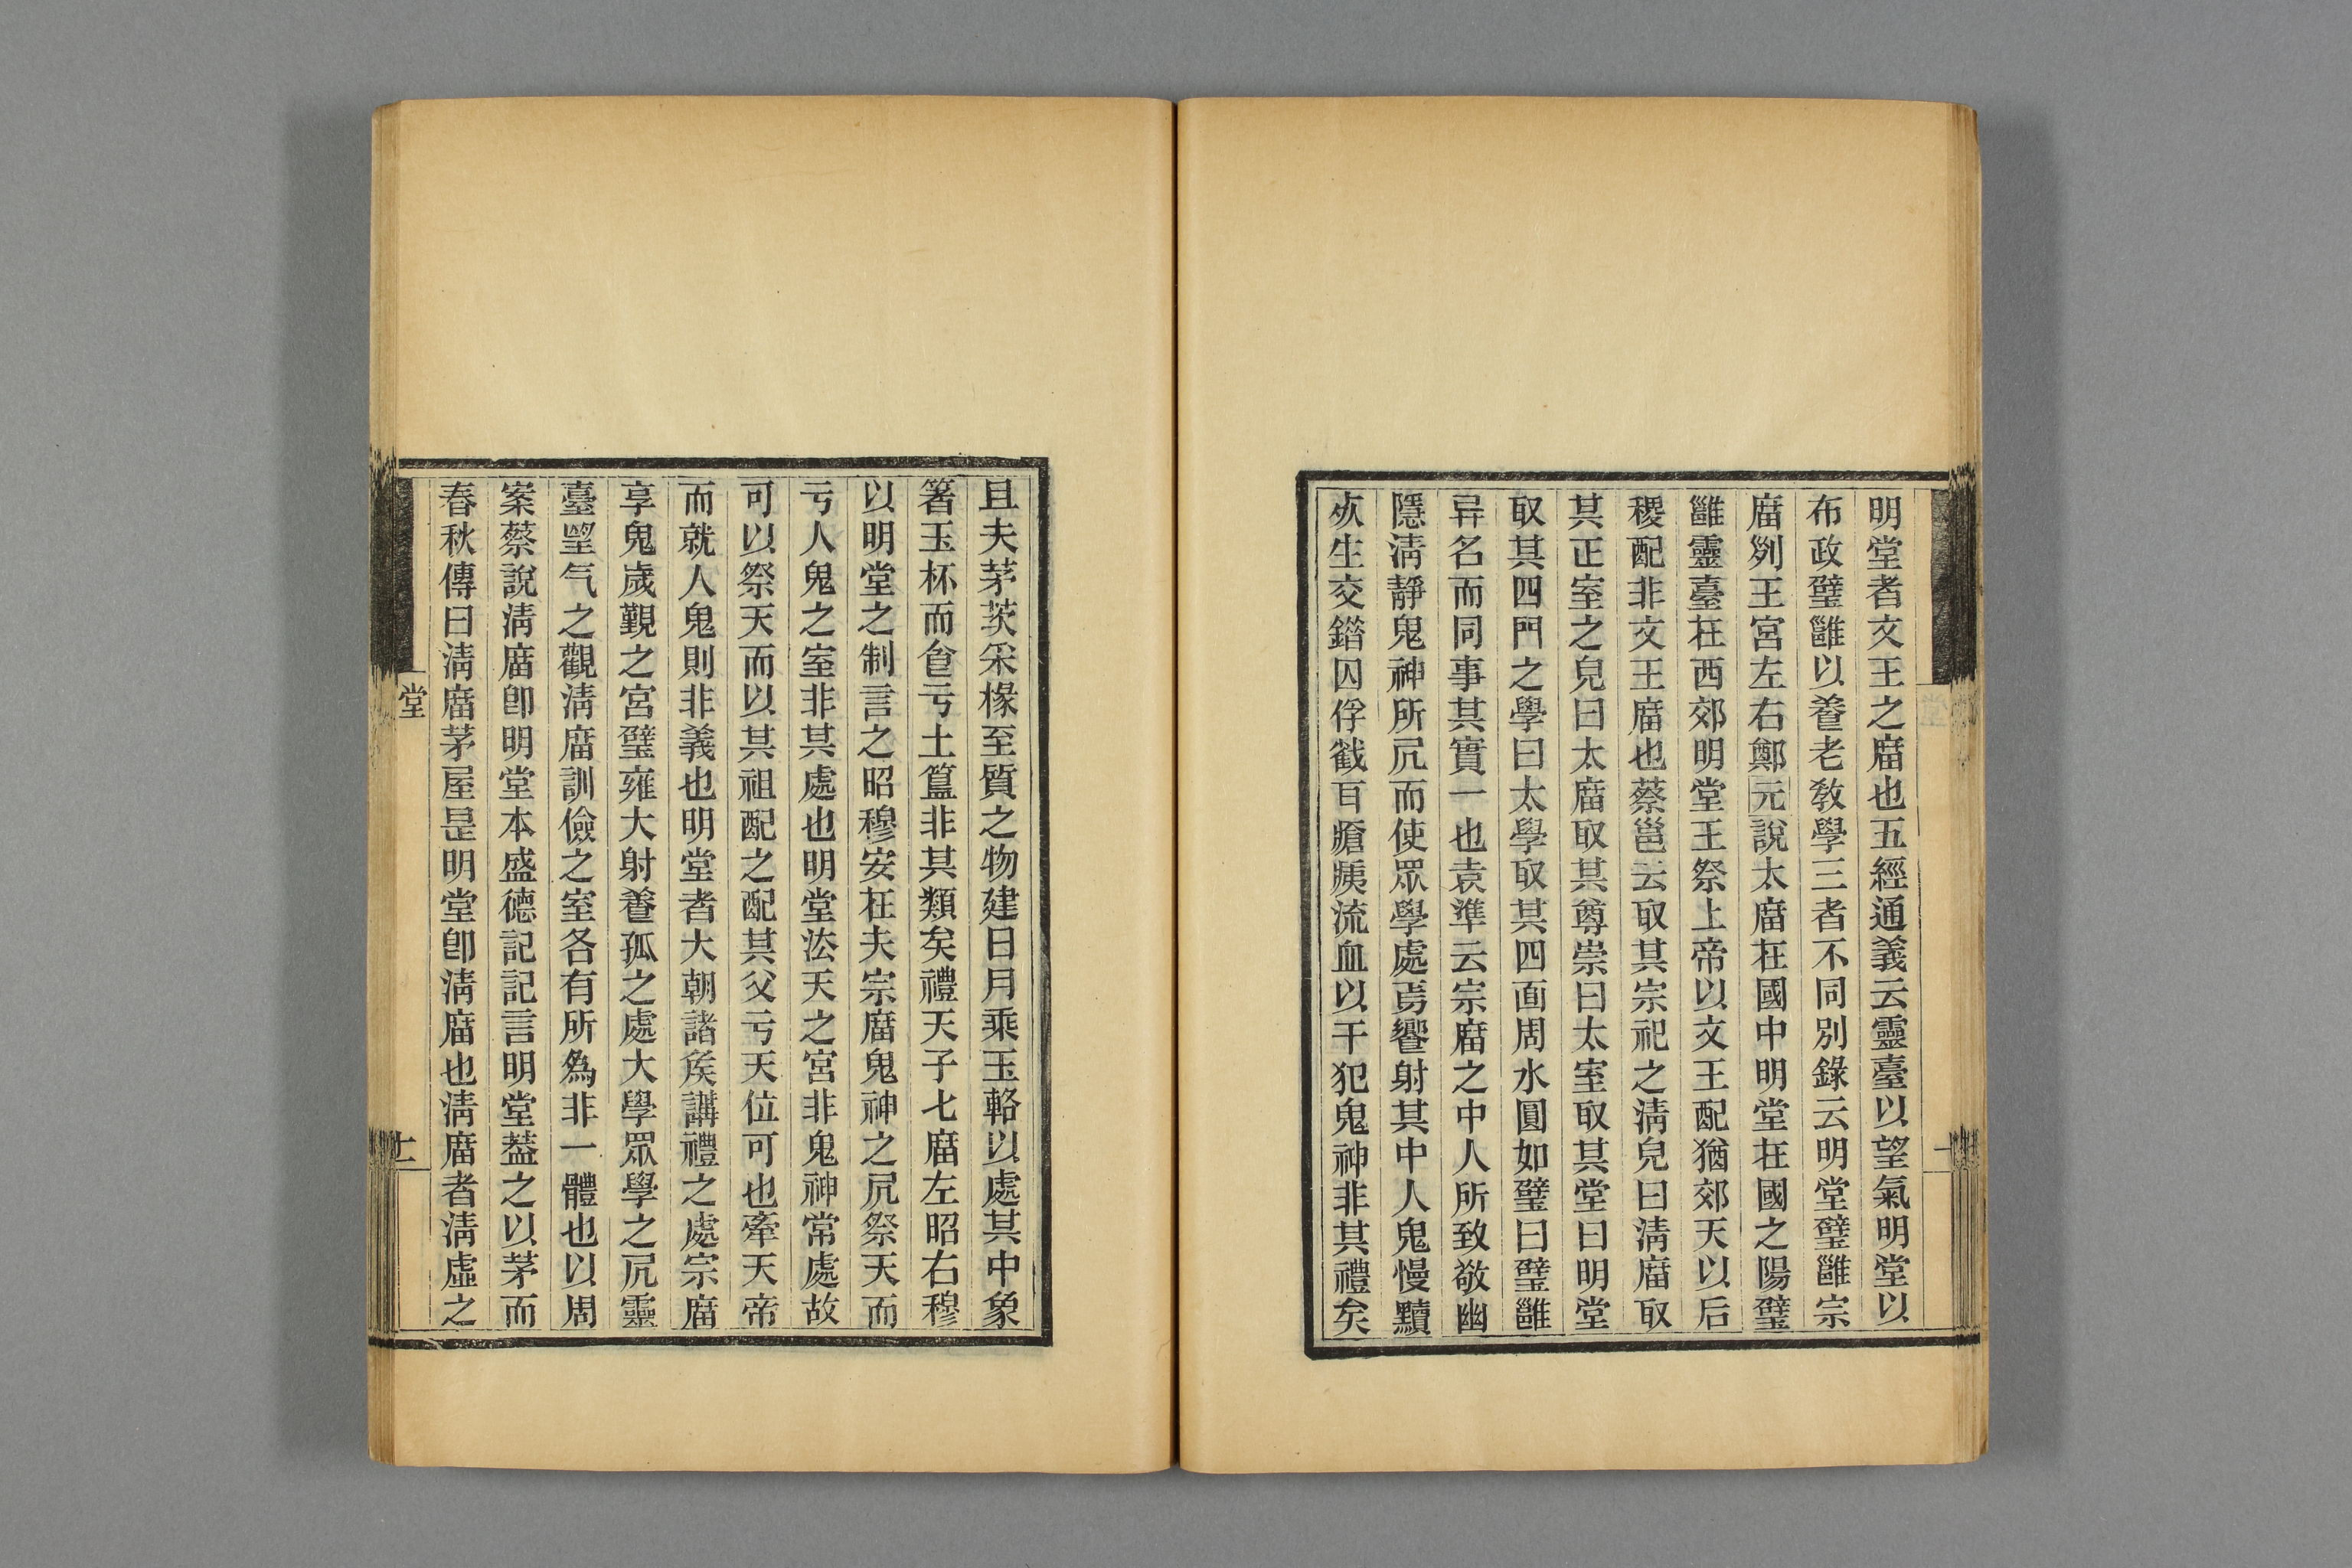 明堂者文王之庿也五經通義云靈臺以望氣明堂以
布政璧雝以養老敎學三者不同別錄云明堂璧雝宗
庿㓟王宮左右鄭元說太庿在國中明堂在國之陽璧
雝靈臺在西郊明堂王祭上帝以文王配猶郊天以后
稷配非文王庿也蔡邕云取其宗祀之淸皃曰淸庿取
其正室之皃曰太庿取其尊崇曰太室取其堂曰明堂
取其四門之學曰太學取其四面周水圓如璧曰璧雝
异名而同事其實一也袁準云宗庿之中人所致敬幽
隱淸靜鬼神所凥而使眾學處焉饗射其中人鬼慢黷
㱃生交錯囚俘戳百瘡痍流血以干犯鬼神非其禮矣
且夫茅茨采椽至質之物建日月乘玉輅以處其中象
箸玉杯而㑹亏土簋非其類矣禮天子七庿左昭右穆
以明堂之制言之昭穆安在夫宗庿鬼神之凥祭天而
亏人鬼之室非其處也明堂法天之宮非鬼神常處故
可以祭天而以其祖配之配其父亏天位可也牽天帝
而就人鬼則非義也明堂者大朝諸矦講禮之處宗庿
享鬼歲覲之宮璧雍大射養孤之處大學眾學之凥靈
臺朢气之觀淸庿訓儉之室各有所爲非一體也以周
案蔡說淸庿卽明堂本盛德記記言明堂葢之以茅而
春秋傳曰淸庿茅屋昰明堂卽淸庿也淸庿者淸虛之
堂
二